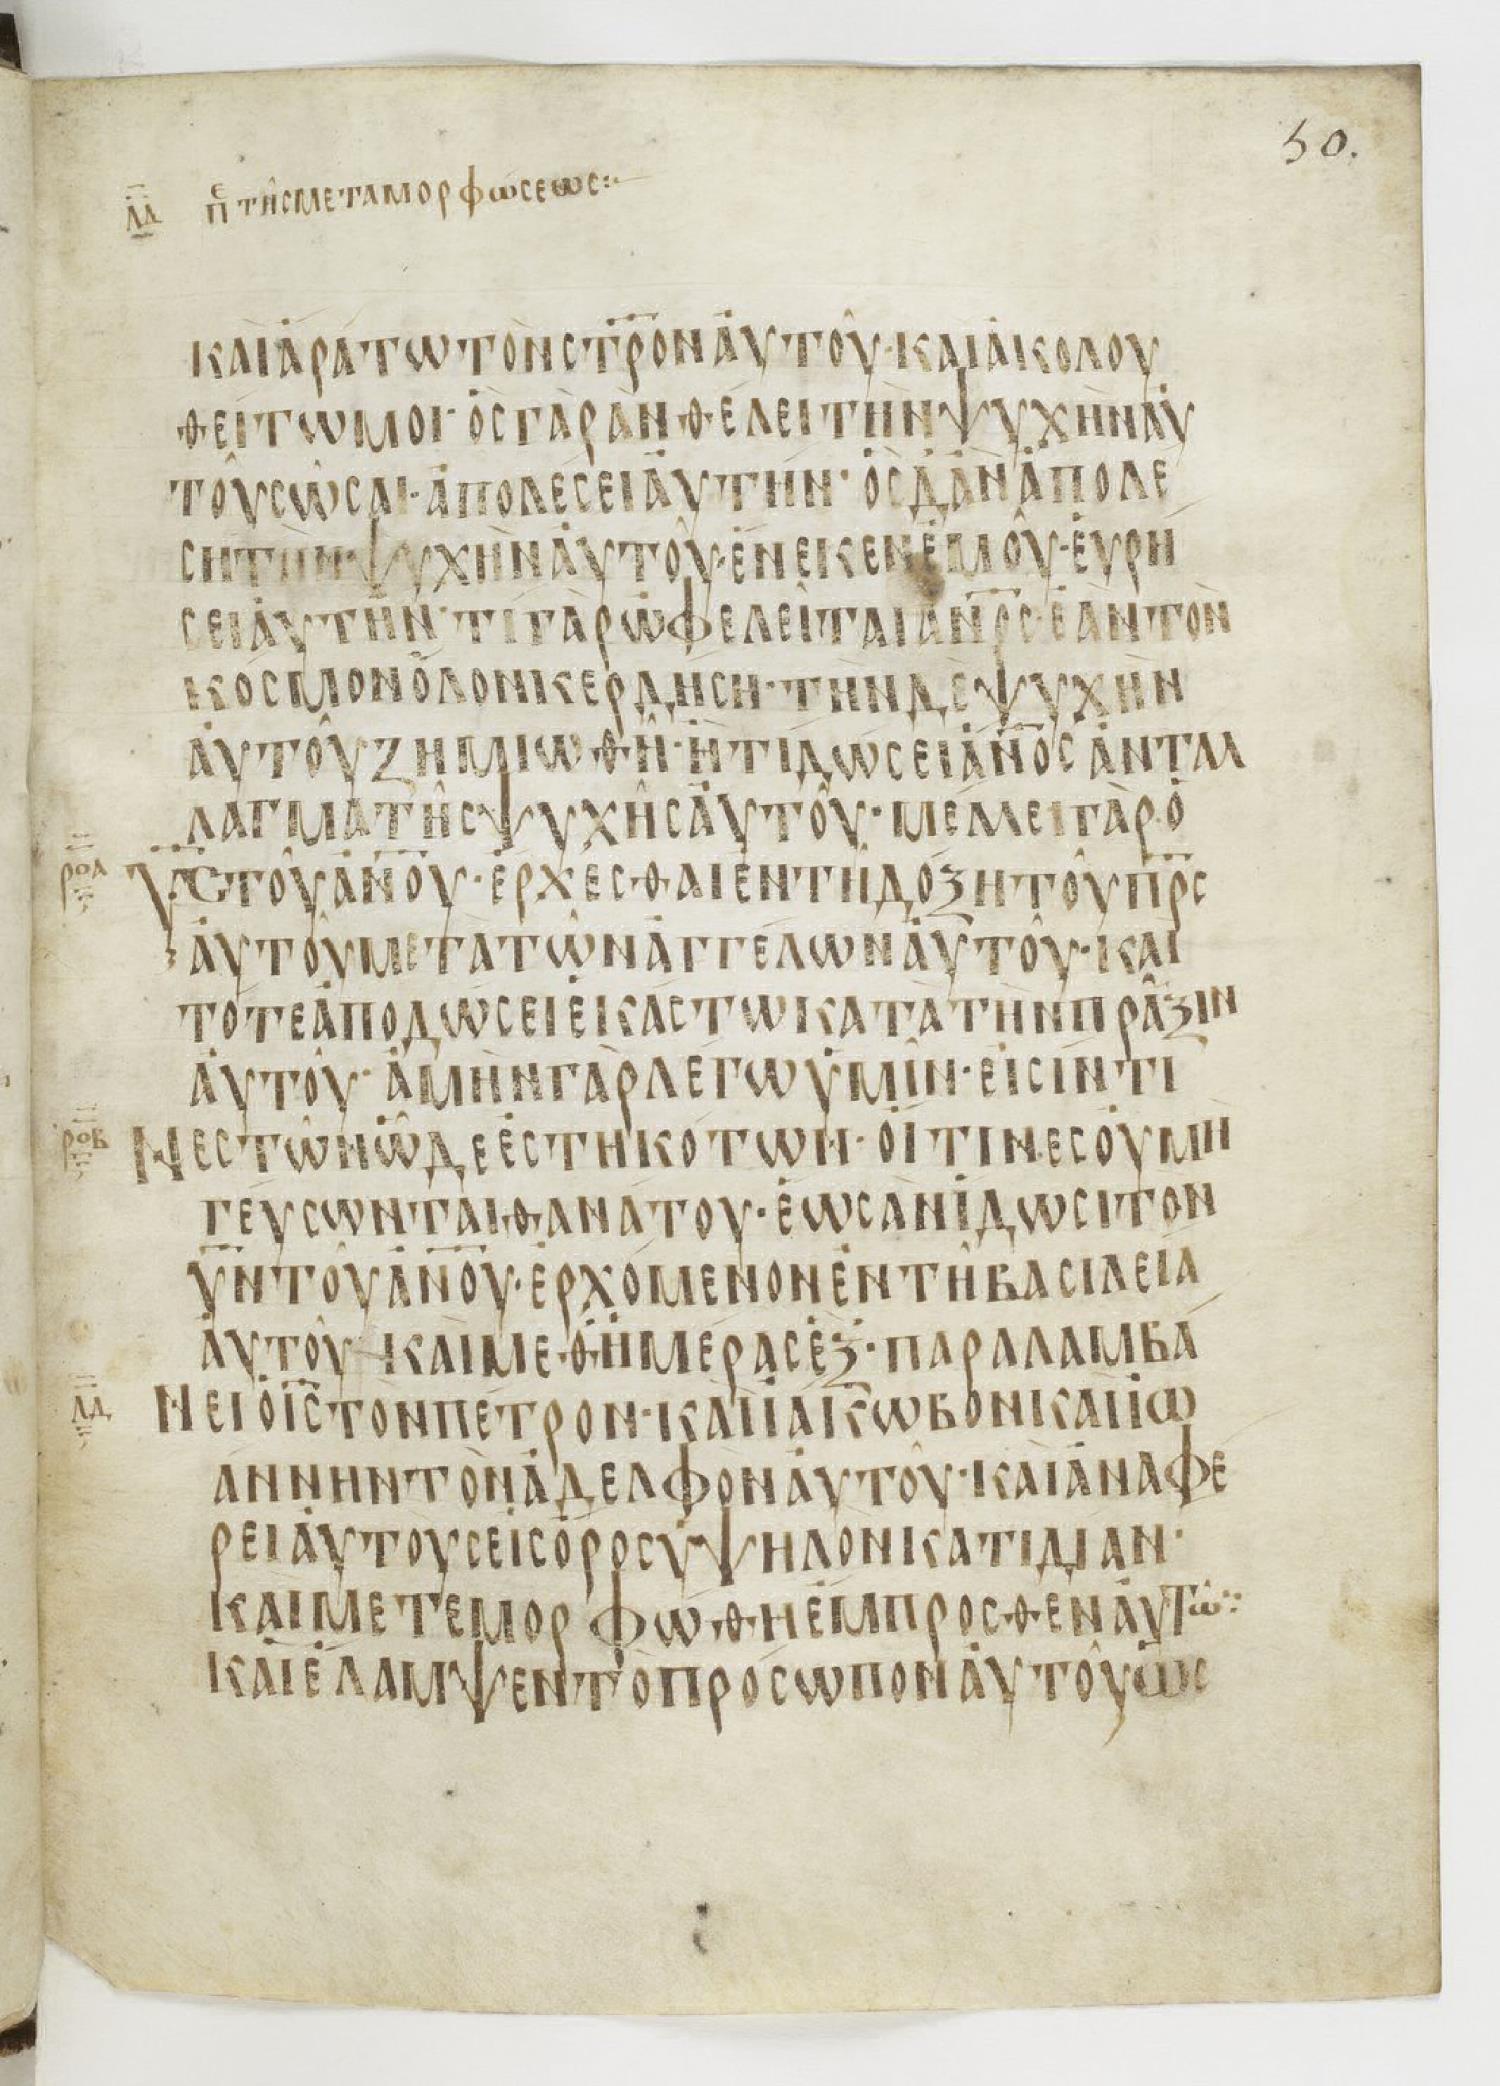 50.
λδ πε τῆς μεταμορφώσεως
καὶ ἀράτω τὸν στρον αὐτοῦ· καὶ ἀκολου
θείτω μοι· ὃς γὰρ ἂν θέλει τὴν ψυχὴν αὐ
τοῦ σῶσαι· ἀπολέσει αὐτήν· ὃς δ' ἂν ἀπολέ
ση τὴν ψυχὴν αὐτοῦ· ἕνεκεν ἐμοῦ· εὑρή
σει αὐτήν· τί γὰρ ὠφελεῖται ανος· ἐὰν τὸν
κόσμον ὅλον κερδήση· τὴν δὲ ψυχὴν
αὐτοῦ ζημιωθῆ· ἢ τί δώσει ανος ἀντάλ
λαγμα τῆς ψυχῆς αὐτοῦ· μέλλει γὰρ ὁ
ροα υς τοῦ ανου· ἔρχεσθαι ἐν τῆ δόξη τοῦ πρς
αὐτοῦ μετὰ τῶν ἀγγέλων αὐτοῦ· καὶ
τότε ἀποδώσει ἑκάστω κατὰ τὴν πρᾶξιν
αὐτοῦ· ἀμὴν γὰρ λέγω ὑμῖν· εἰσίν τι
ροβ νες τῶν ὧδε ἑστηκότων· οἵτινες οὐ μὴ
γεύσωνται θανάτου· ἕως ἂν ἴδωσι τὸν
υν τοῦ ανου· ἐρχόμενον ἐν τῆ βασιλεία
αὐτοῦ καὶ μεθ' ἡμέρας ἓξ· παραλαμβά
λδ νει ὁ ις τὸν πέτρον· καὶ ἰάκωβον καὶ ἰω
άννην τὸν ἀδελφὸν αὐτοῦ· καὶ ἀναφέ
ρει αὐτοὺς εἰς ὄρος ὑψηλὸν κατιδίαν·
καὶ μετεμορφώθη ἔμπροσθεν αὐτῶ
καὶ ἔλαμψεν τὸ πρόσωπον αὐτοῦ ὡς